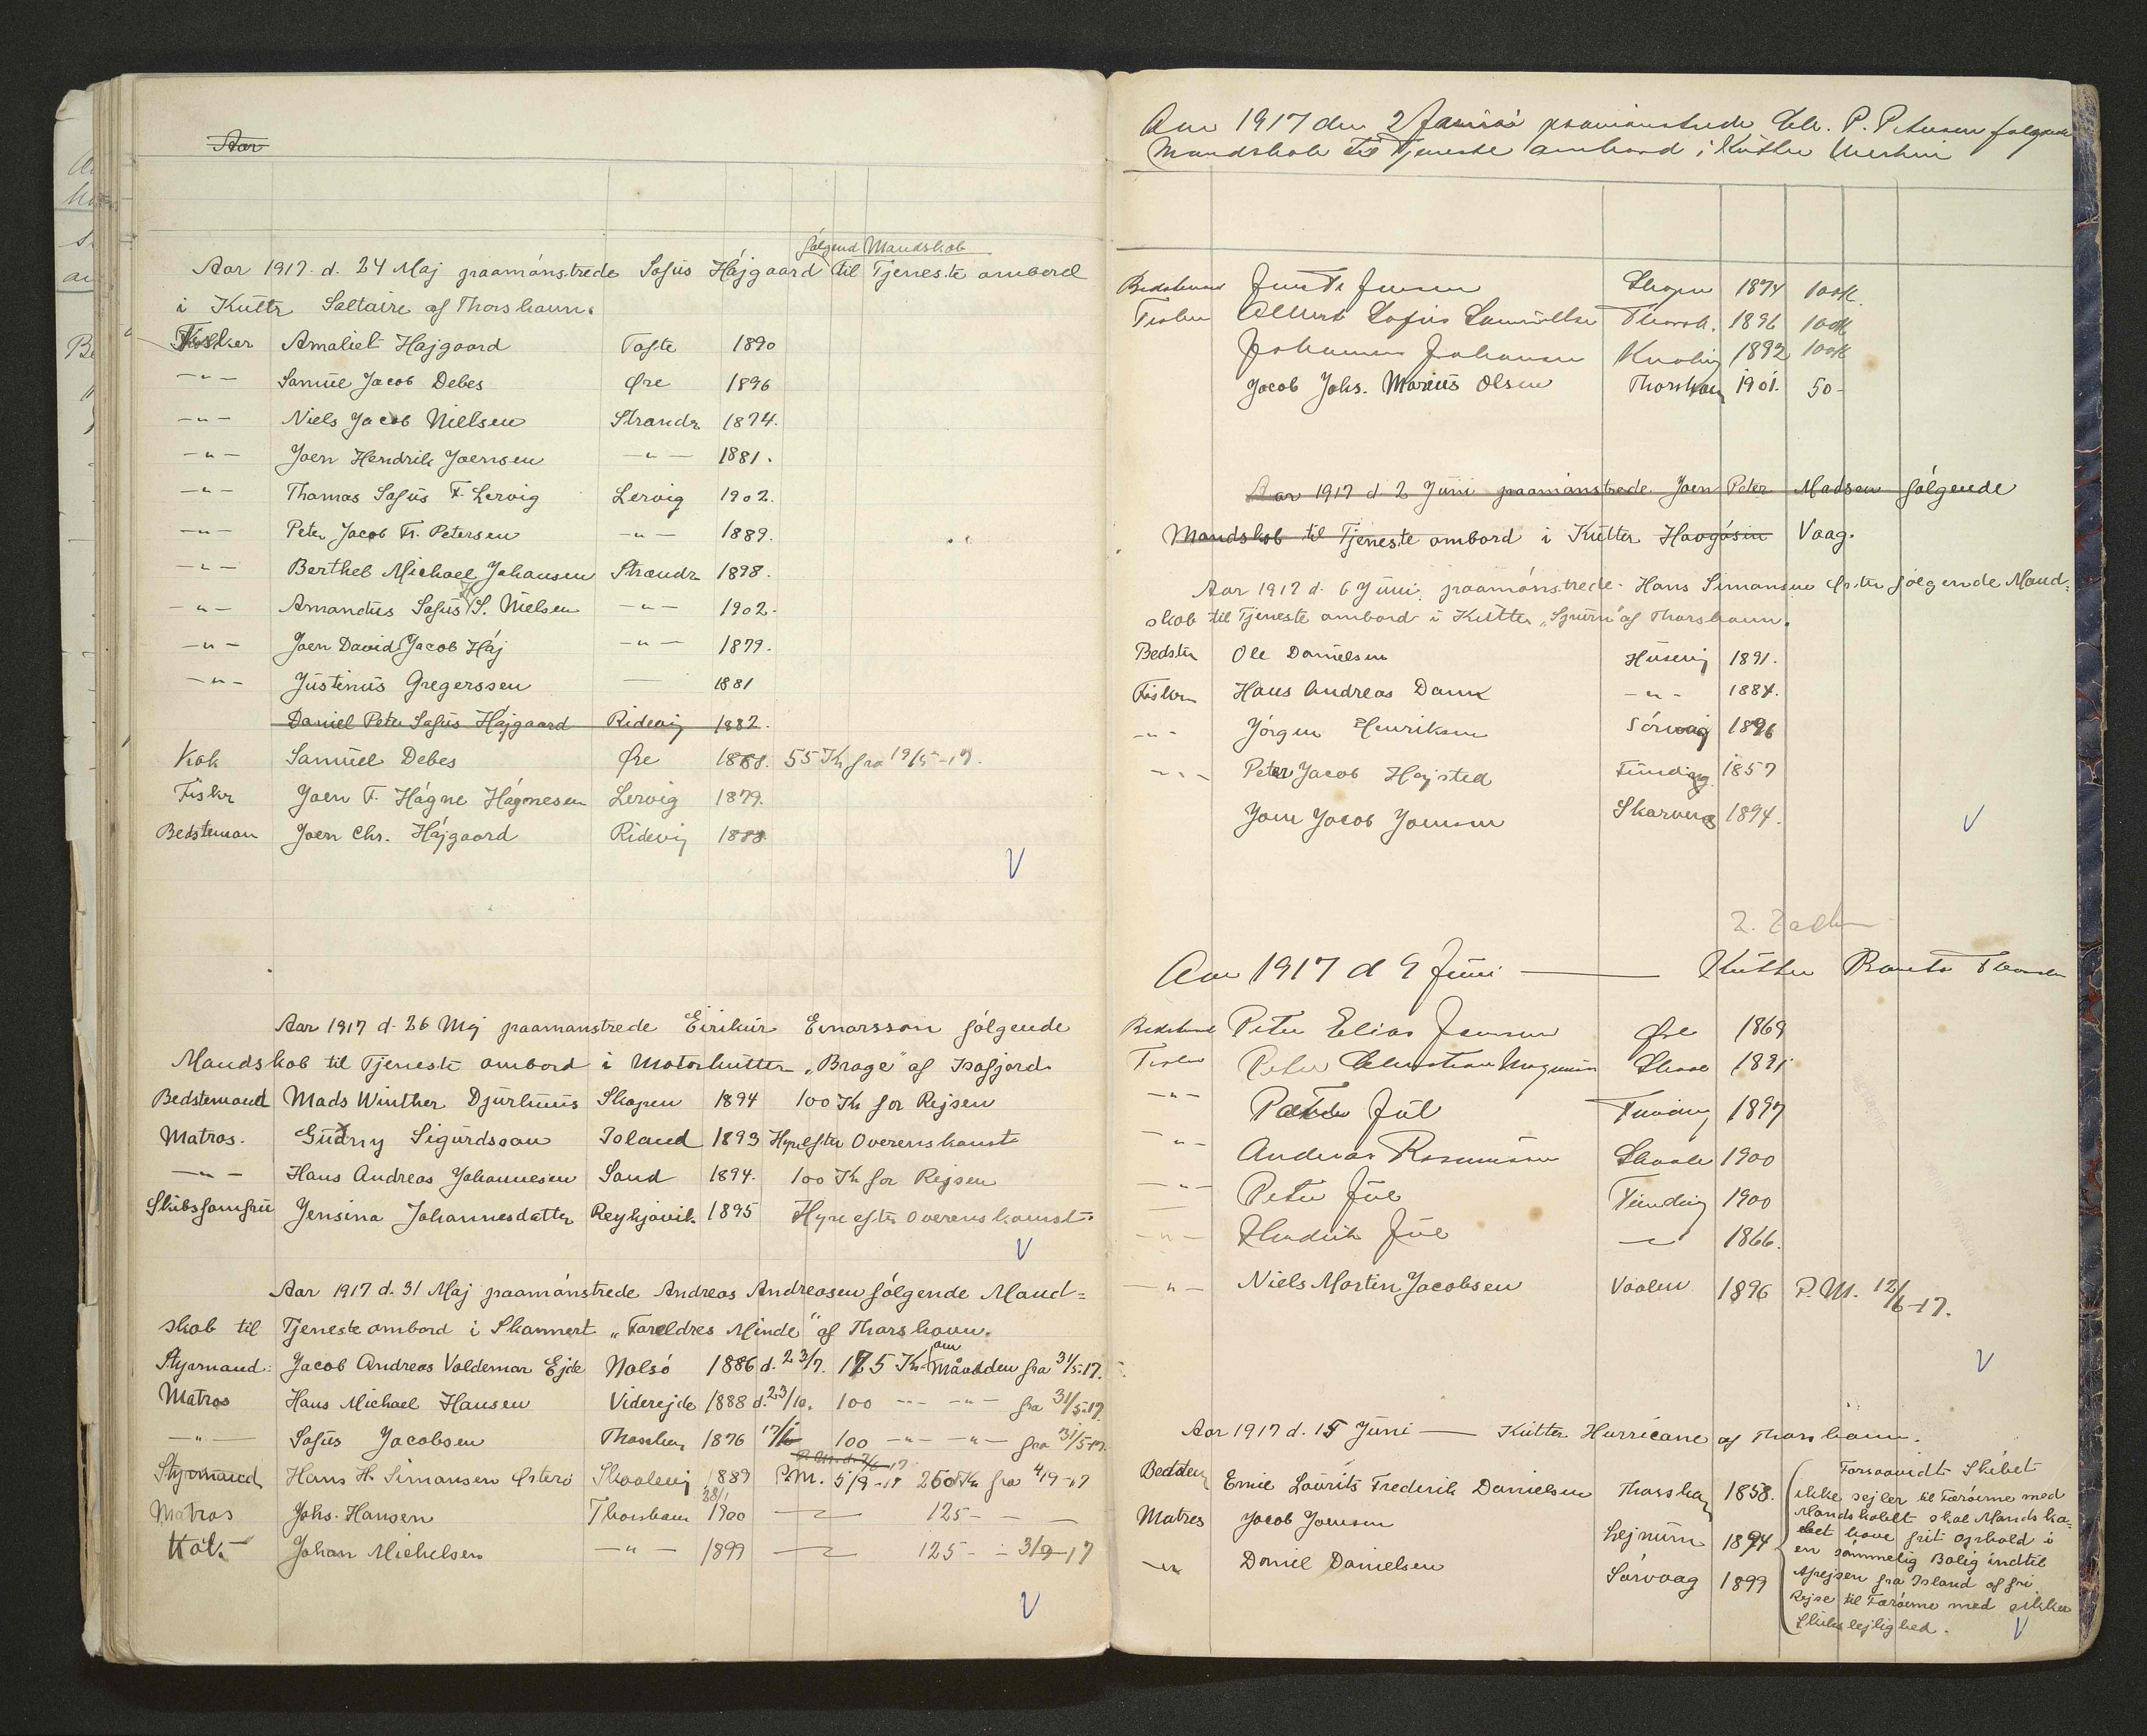 Aar
følgend Mandskab
Aar 1917. d. 24 Maj paamønstrede Sofus Højgaard til Tjeneste ombord
i Kutte Saltaire af Thorshavn.
Fisker Amaliel Højgaard Tofte 1890
-"- Samuel Jacob Debes Øre 1896
-"- Niels Jacob Nielsen Strandr 1874.
-"- Joen Hendrik Joensen -"- 1881.
-"- Thomas Sofus F. Lervig Lervig 1902.
-"- Peter Jacob Fr. Petersen -"- 1889.
-"- Berthel Michael Johansen Strandr 1898.
-"- Amandus Sofus S. Nielsen -"- 1902.
-"- Joen David Jacob Høj -"- 1879.
-"- Justinus Gregerssen — 1881
Daniel Peter Sofus Højgaard Ridevig 1882.
Kok Samuel Debes Øre 1868. 55 Kr fra 19/5-17.
Fiskr Joen F. Høgne Høgnesen Lervig 1879.
Bedsteman Joen Chr. Højgaard Ridevig 1888.
V
Aar 1917 d. 26 Maj paamønstrede Eirikur Einarsson følgende
Mandskab til Tjeneste ombord i Motorkutter "Brage" af Isafjord.
Bedstemand Mads Winther Djurhuus Skopen 1894 100 Kr for Rejsen
Matros. Gudny Sigurdsson Island 1893 Hyre efter Overenskomst
-"- Hans Andreas Johannesen Sand 1894. 100 Kr for Rejsen
Skibsjomfru Jensina Johannesdatter Reykjavik 1895 Hyre efter Overenskomst.
V
Aar 1917 d. 31 Maj paamønstrede Andreas Andreasen følgende Mand=
skab til Tjeneste ombord i Skonnert "Foreldres Minde" af Thorshavn.
Styrmand: Jacob Andreas Valdemar Ejde Nolsø 1886 d. 23/7. 175 Kr om Maanden fra 31/5-17.
Matros Hans Michael Hansen Viderejde 1888 d. 23/10. 100 -"- -"- fra 31/5-17
-"- Sofus Jacobsen Thorshavn 1876 17/6 100 -"- -"- fra 31/5-17.
Styrmand Hans H. Simonsen Østerø Skaalevig 1889 P.M. 5/9-17 250 Kr fra 4/9-17
Matros Johs. Hansen Thorshavn 28/1 1900 — 125- - -
Kok. Johan Michelsen -"- 1899 — 125- - 3/9-17
V
Aar 1917 den 2 Juni paamønstrede Chr. P. Petersen følgende
Mandskab til Tjeneste ombord i Kutter
Bedstemand Jensen Skopen 1874 100 Kr.
Fisker Albert Sofus Samuelsen Thorsh. 1896 100 Kr
Johannes Johansen Kvalvig 1892 100 Kr
Jacob Johs. Marius Olsen Thorshavn 1901. 50-
Aar 1917 d. 2 Juni paamønstrede Joen Peter Madsen følgende
Mandskab til Tjeneste ombord i Kutter Havgásin Vaag.
Aar 1917 d. 6 Juni, paamønstrede Hans Simonsen Øster følgende Mand=
skab til Tjeneste ombord i Kutter "Spurn" af Thorshavn.
Bedstm Ole Danielsen Husevig 1891.
Fisker Hans Andreas Dam -"- 1884.
-"- Jørgen Henriksen Sørvaag 1896
-"- Peter Jacob Højsted Funding. 1857
Joen Jacob Joensen Skarvenæs 1894.
V
Aar 1917 d 9 Juni — Kutter
Bedstemand Peter Elias Joensen Øre 1869
Fisker Peter Christian Magnussen Skaale 1891
-"- Jul Funding 1897
-"- Andreas Rasmussen Skaale 1900
-"- Peter Jul Funding 1900
-"- Hendrik Jul -"- 1866.
-"- Niels Martin Jacobsen Vaalen 1896 P.M. 12/6-17.
V
Aar 1917 d. 15 Juni — Kutter Hurricane af Thorshavn.
Bedstem Emil Laurits Frederik Danielsen Thorshavn 1858.
Matros Jacob Joensen Lejnum 1894
-"- Daniel Danielsen Sørvaag 1899
Forsaavidt Skibet
ikke sejler til Færøerne med
Mandskabet skal Mandska-
bet have frit Ophold i
en sømmelig Bolig indtil
Afrejsen fra Island og fri
Rejse til Færøerne med sikker
Skibslejlighed.
V